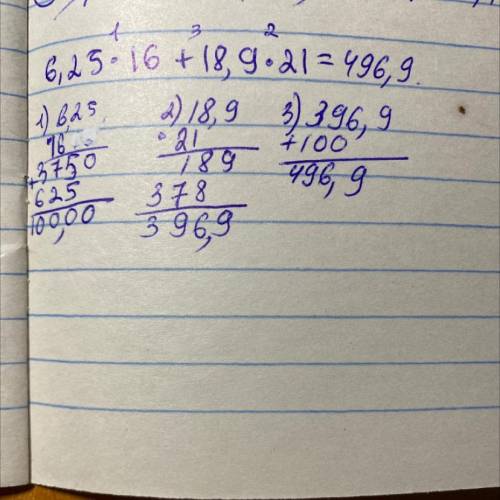 1 3 2
6,25 · 16 + 18,9 · 21 = 496,9.
1) 6,25 2) 18,9 3) 396,9
16 · 21 +100
+3750 189 496,9
625 378
100,00 396,9